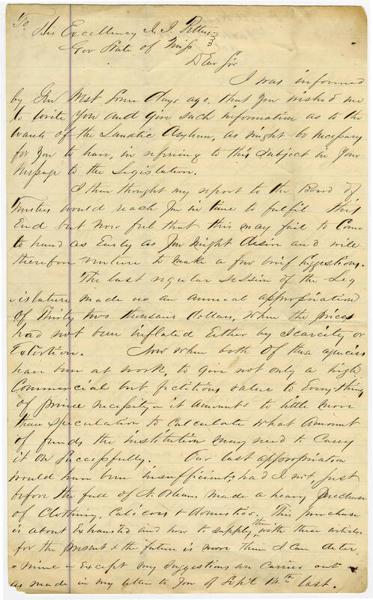 To His Excellency J. J. Pettus
Gov State of Miss
Dear Sir
I was informed
by Gen West some days ago, that you wished me
to write you and give such information as to the
wants of the Lunatic Asylum, as might be necessary
for you to have, in refering to this subject in your
Message to the Legislature.
I then thought my report to the Board of
Trustees would reach you in time to fulfil this
End but now feel that this may fail to come
to hand as Early as you might desire and will
therefore venture to make a few brief suggestions.
The last regular session of the Leg
islature made us an annual appropriation
of Thirty two thousand Dollars, when the prices
had not been inflated Either by Scarcity or
Extortion. Now when both of these agencies
have been at work, to give not only a high
Commercial but fictitious value to Everything
of prime necessity - it amounts to little more
than speculation to calculate what amount
of funds the institution may need to carry
it on successfully. Our last appropriation
would have been insufficient, had I not just
before the fall of N. Orleans made a heavy purchase
of Clothing, Calicoes & domestics. This purchase
is about Exhausted and how to supply them with these articles
for the present & the future is more than I can deter
mine - Except my suggestions are carried out
as made in my letter to you of Sept 14th last.